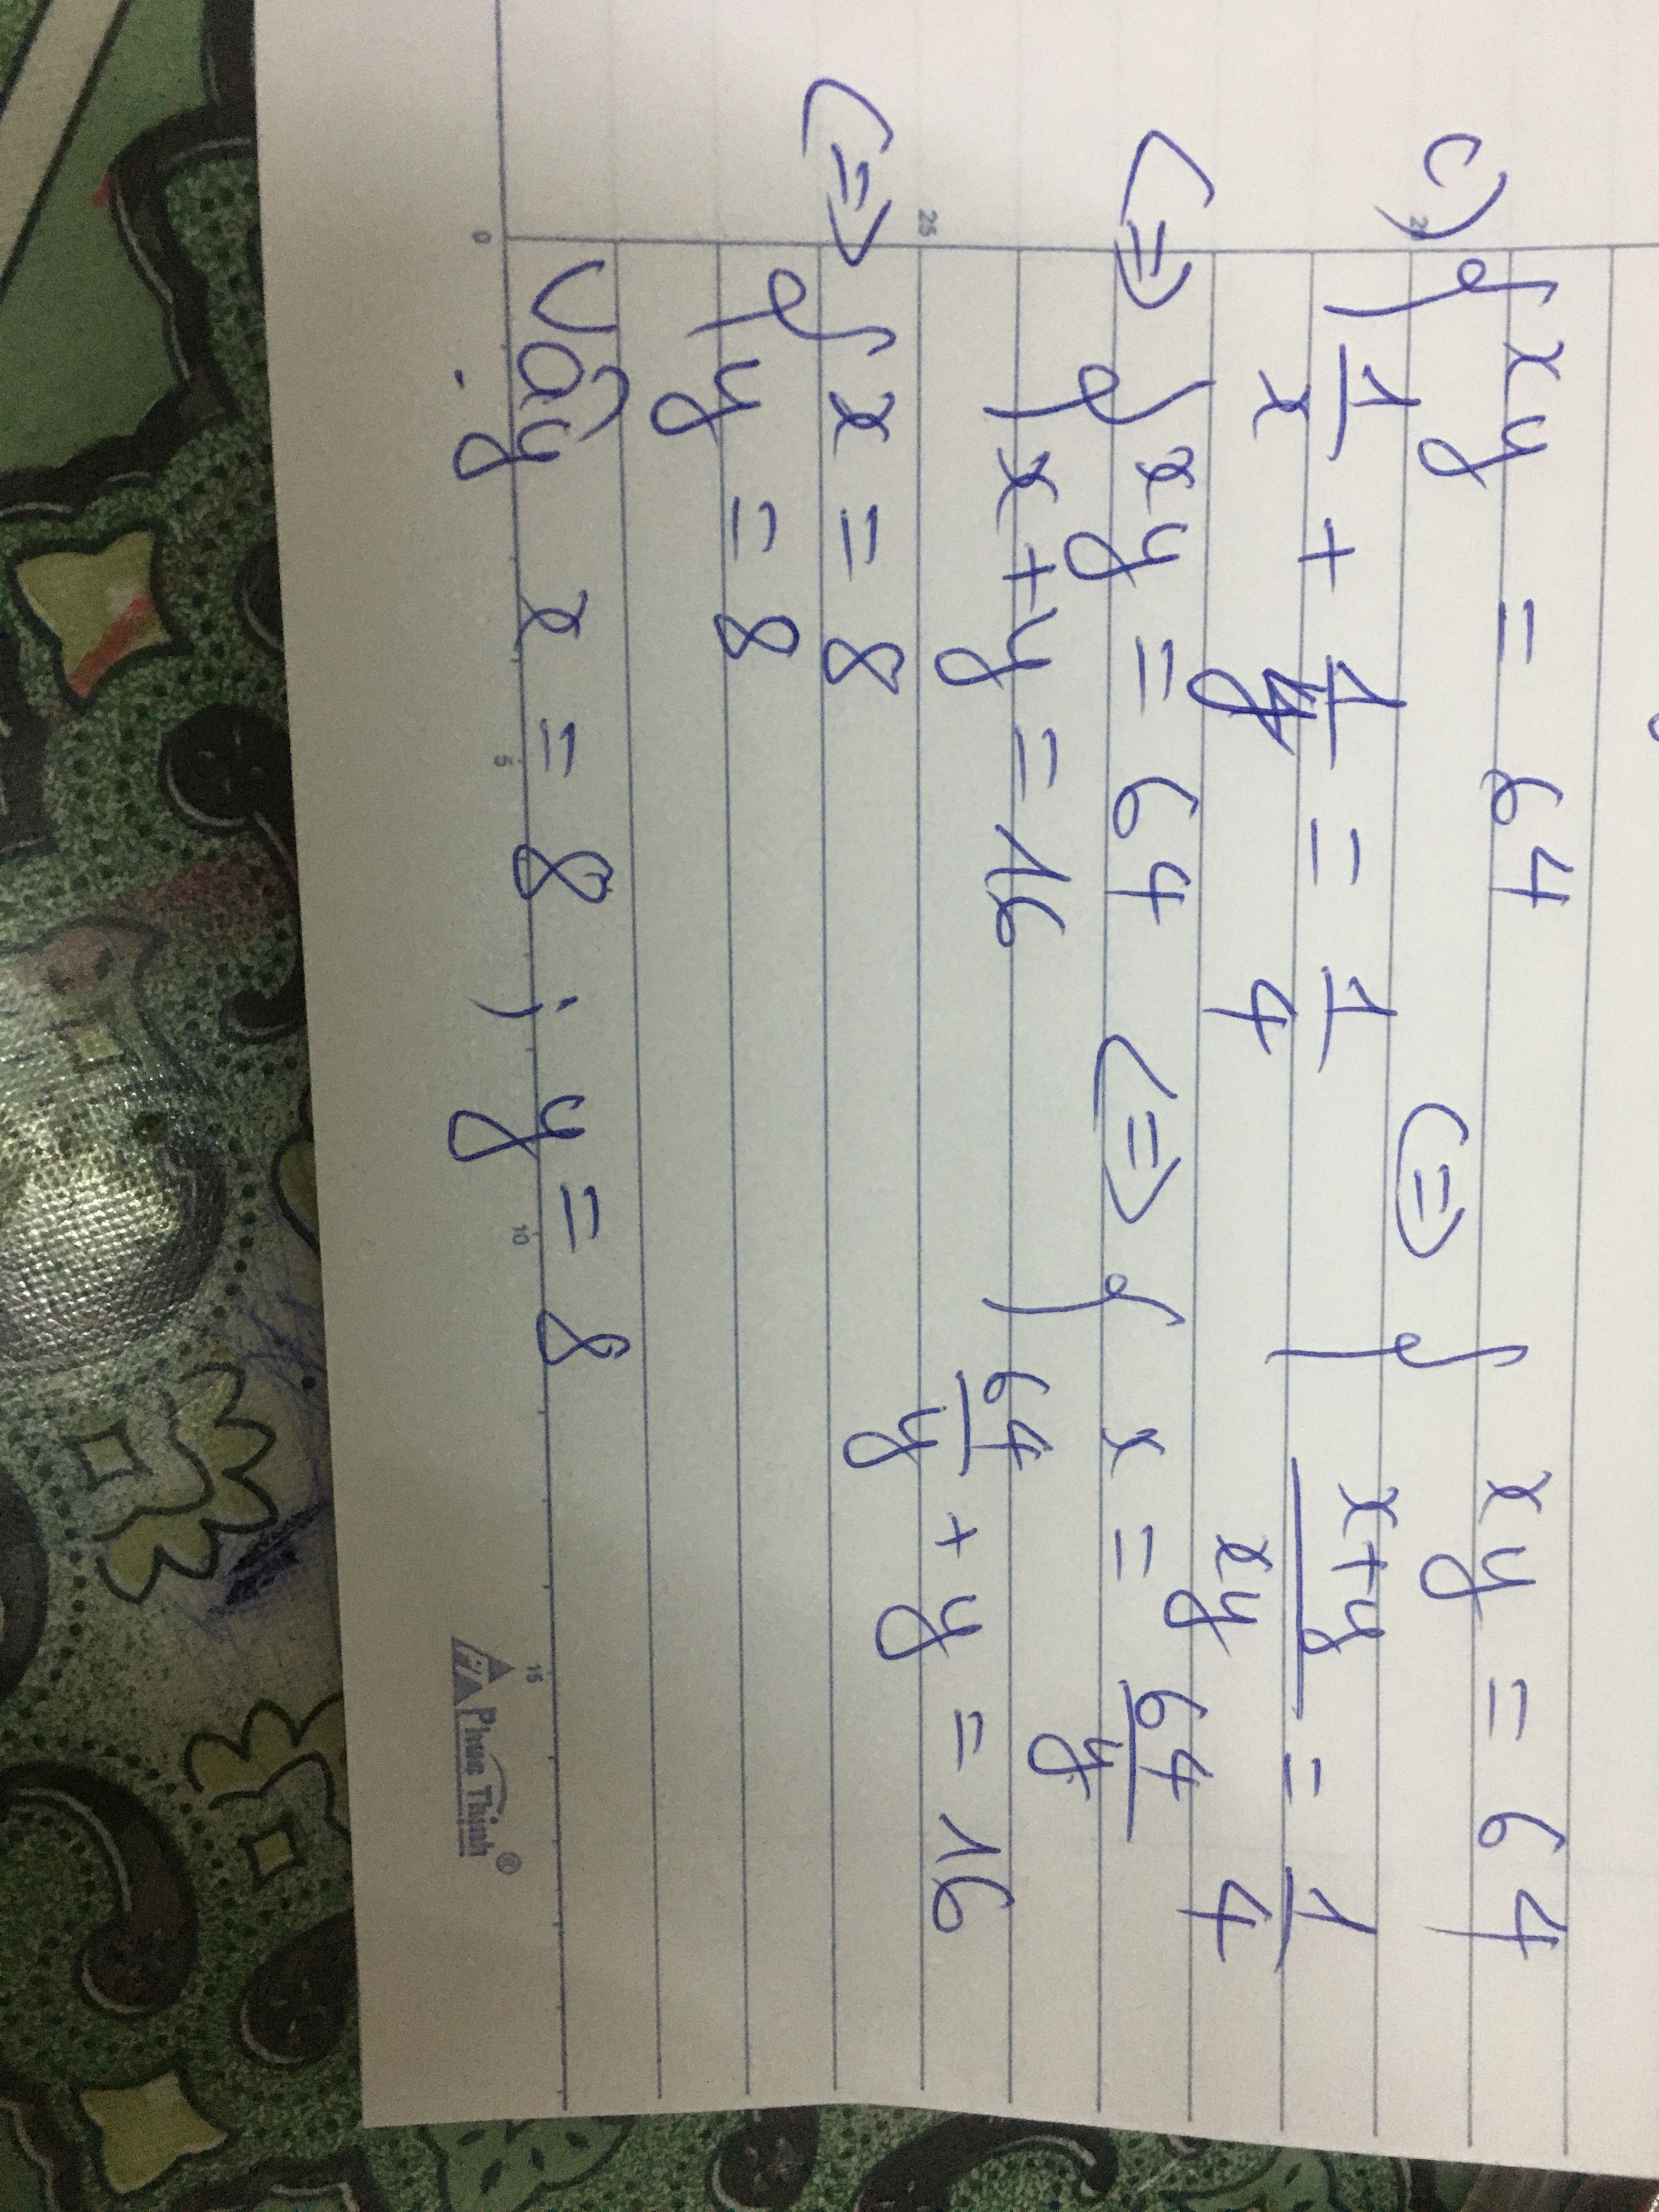 c) { xy = 64
1/x + 1/y = 1/4 <=> { xy = 64
(x+y)/xy = 1/4
<=> { xy = 64
x+y = 16 <=> { x = 64/y
64/y + y = 16
<=> { x = 8
y = 8
Vậy x = 8 ; y = 8
0 5 10 15
25
Phuc Thinh®